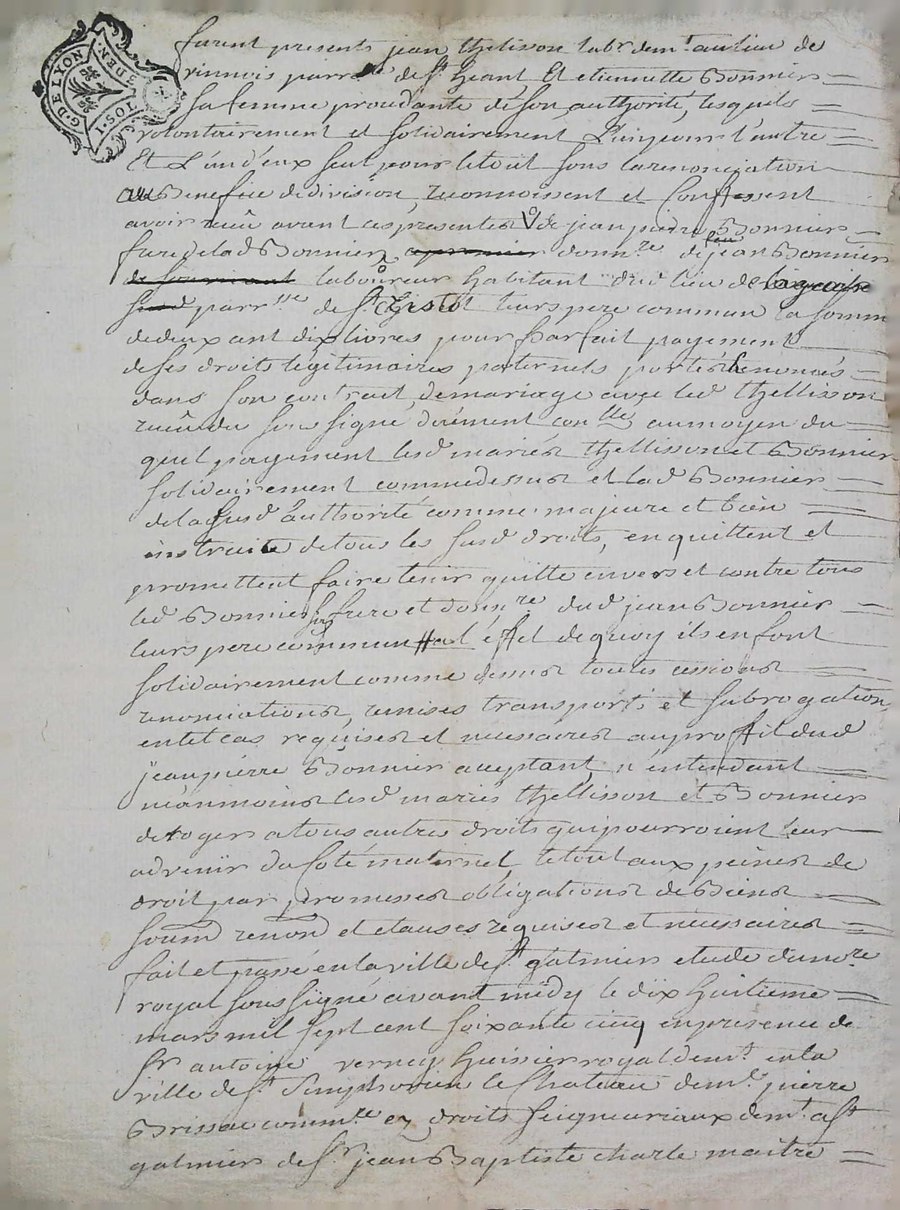 G. DE LYON
I. SOL
8. DEN.
furent presents jean thelisson labr demt au lieu de
parrsse de st heant Et etiennette Bonnier
sa femme procedante de son authorité, lesquels
volontairement et solidairement L'un pour l'autre
Et L'un d'eux seul pour le tout sous la renonciation
au Benefice de division, reconnoissent et Confessent
avoir reçû avant ces presentes de jean pierre Bonnier
frere de lad Bonnier donnre de feu jean Bonnier
laboureur habitant du lieu de
parrsse de st leur pere commun la somme
de deux cent dix livres pour parfait payement
de ses droits légitimaires paternels portés Enoncés
dans son contrat de mariage avec led thellisson
reçû du sousigné düement conllé au moyen du
quel payement lesd mariés thellisson et Bonnier
solidairement comme dessus et lad Bonnier
de la susd authorité comme majeure et bien
instruite de tous les susd droits, en quittent et
promettent faire tenir quitte envers et contre tous
led Bonnier frere et donnre dud jean Bonnier
leurs pere commun a l'effet de quoy ils en font
solidairement comme dessus toutes cessions
renonciations, remises transports et subrogations
en tel cas requises et necessaires au proffit dud
jean pierre Bonnier acceptant, n'entendant
néanmoins lesd mariés thellisson et Bonnier
deroger a tous autres droits qui pourroient leur
advenir du coté maternel, le tout aux peines de
droit par promesses obligations de Biens
soumd renond et clauses requises et necessaires
fait et passé en la ville de st galmier etude du nore
royal soussigné avant midy le dix huitieme
mars mil sept cent soixante cinq en presence de
sr antoine verney huissier royal demt en la
ville de st Simphorien le chateau demt pierre
Brissac commre en droits seigneuriaux demt a st
galmier de sr jean Baptiste charle maitre